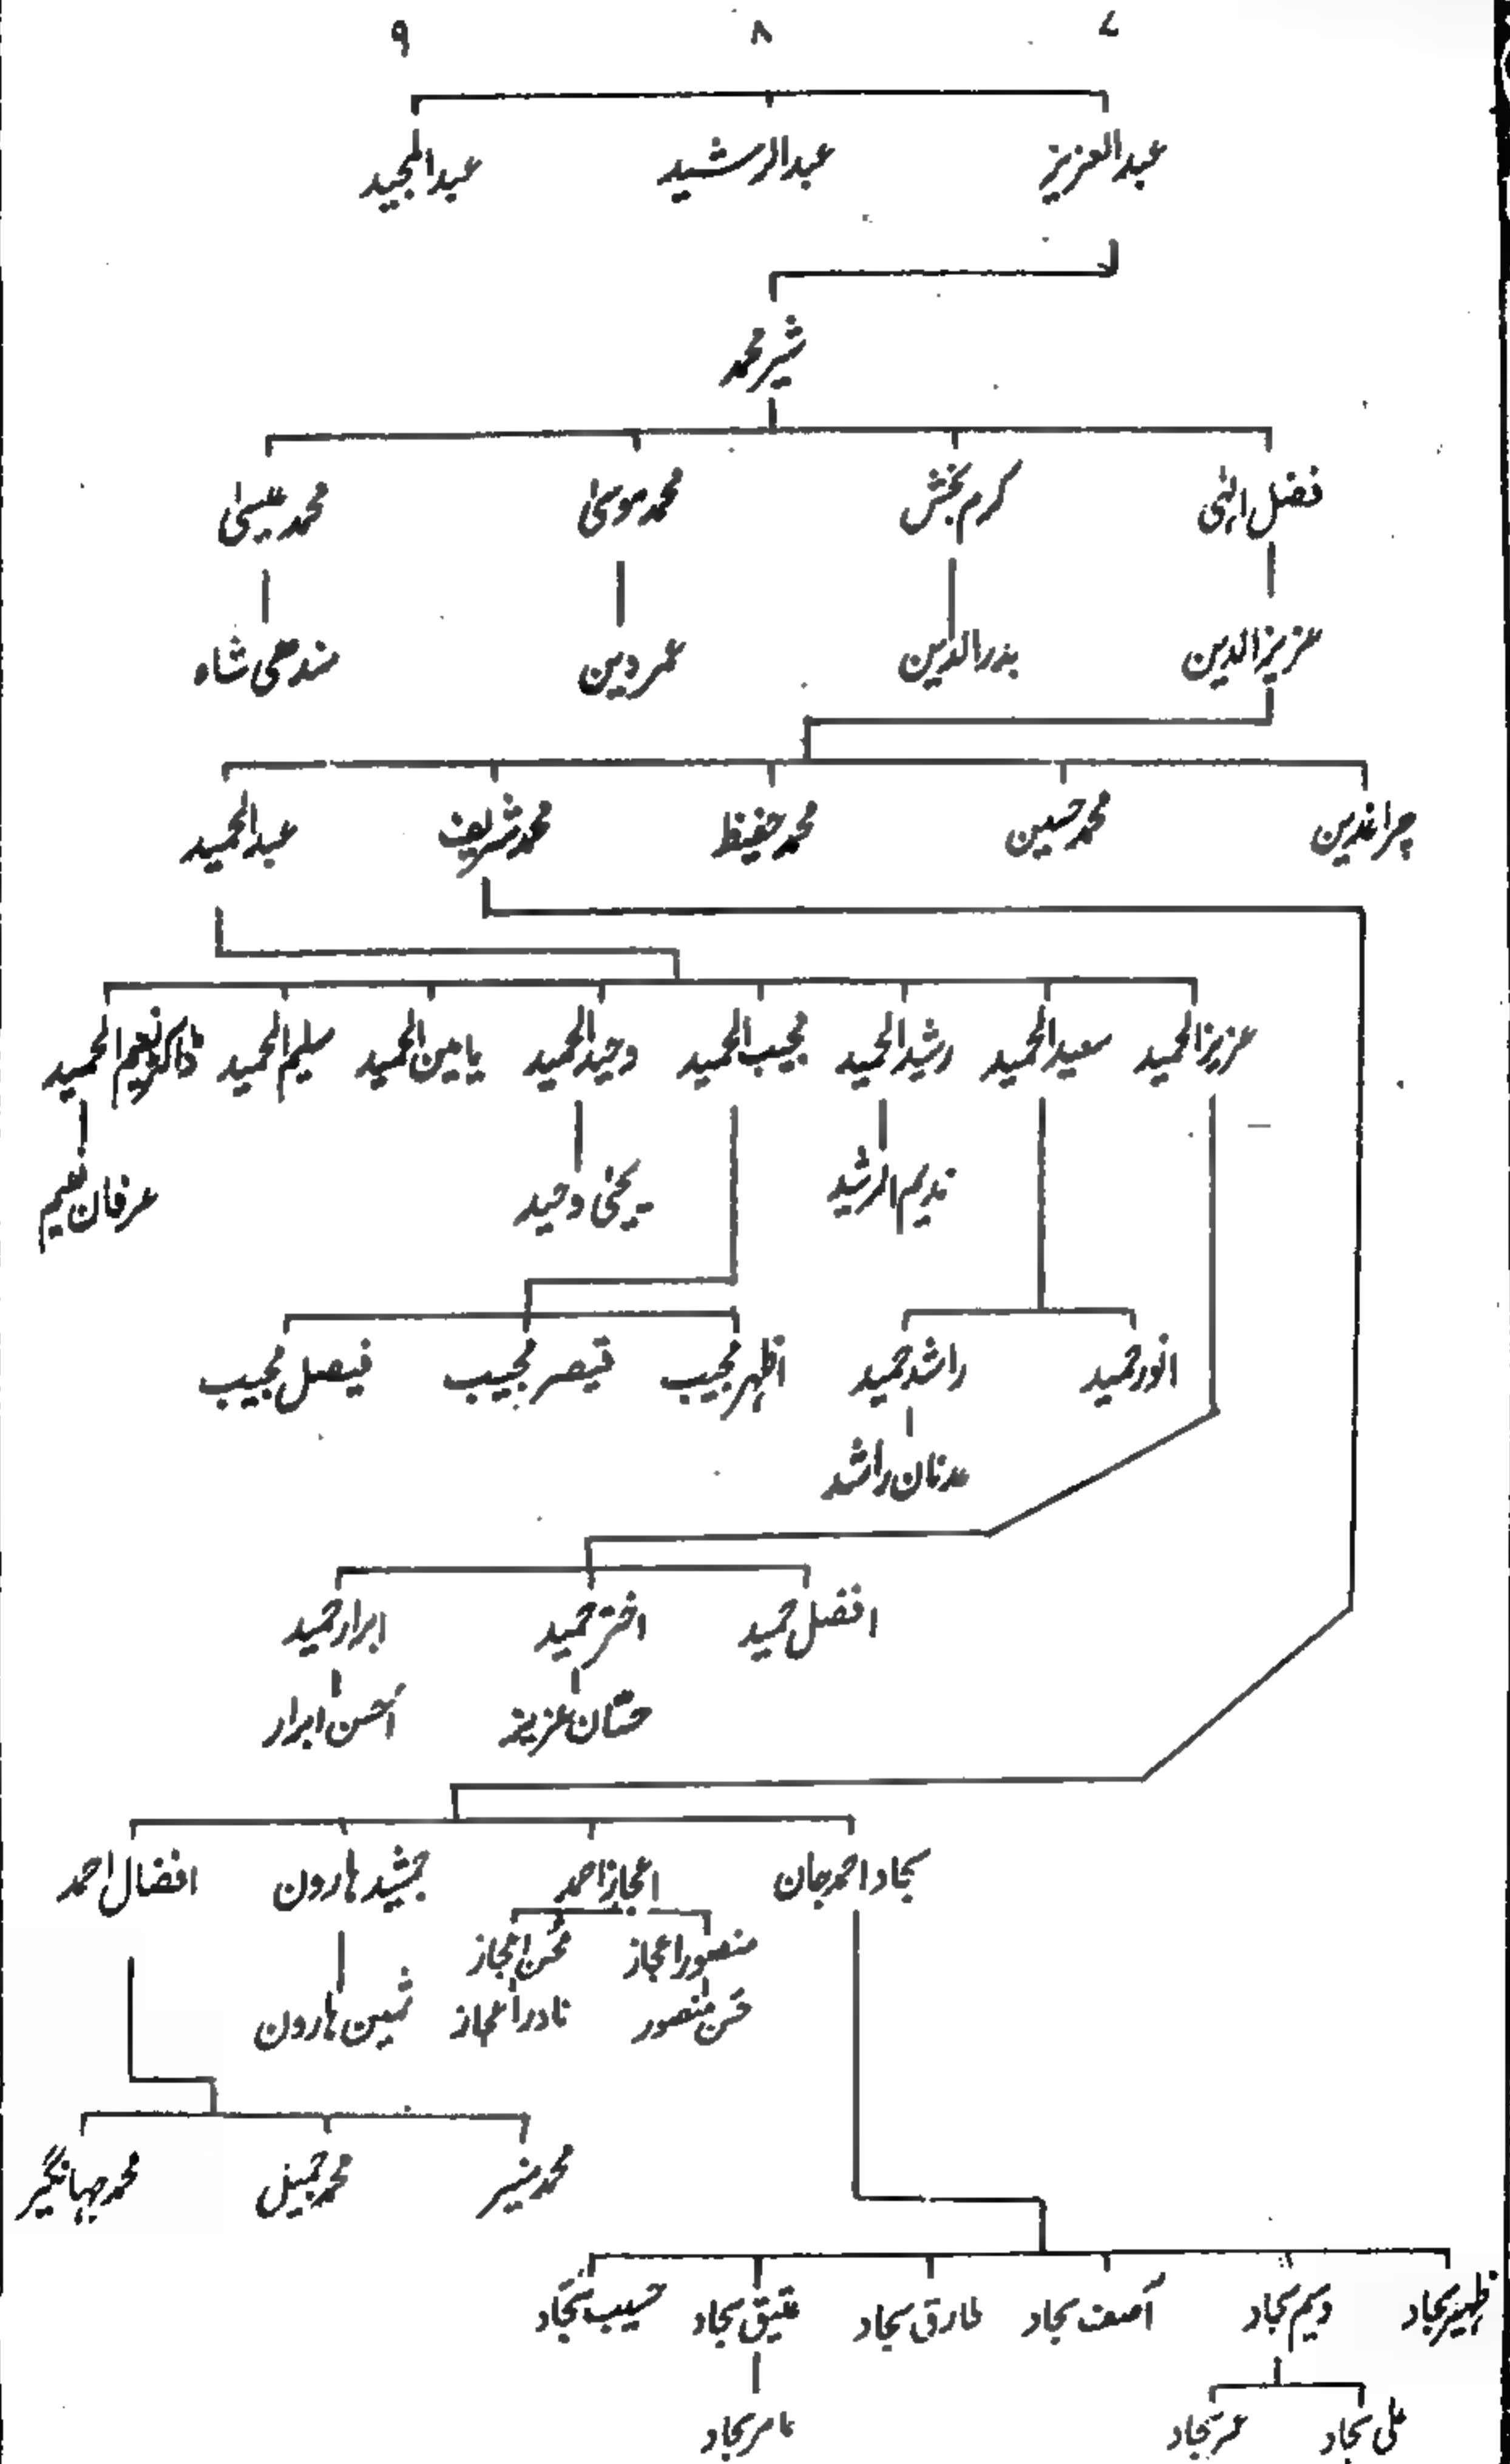 ۷ ۸ ۹
عبدالعزیز عبدالرشید عبدالمجید
شیر محمد
فضل الٰہی کرم بخش محمد موسیٰ محمد عیسیٰ
عزیزالدین بدرالدین عمر دین سندھی شاہ
چراغدین محمد حسین محمد حفیظ محمد شریف عبدالحمید
عزیزالحمید سعیدالحمید رشیدالحمید مجیب الحمید وحیدالحمید یامین الحمید سلیم الحمید ڈاکٹر نعیم الحمید
ندیم الرشید یحیٰی وحید عرفان نعیم
انور حمید راشد حمید اظہر مجیب قیصر مجیب فیصل مجیب
عدنان راشد
افضل حمید اختر حمید ابرار حمید
حسّان عزیز اَحسن ابرار
سجاد احمد جان اعجاز احمد جمشید ہارون افضال احمد
منصور اعجاز محسن اعجاز
حسن منصور نادر اعجاز ثمین ہارون
محمد منیر محمد جمیل محمد جہانگیر
اظہر سجاد وسیم سجاد آصف سجاد طارق سجاد عتیق سجاد حسیب سجاد
علی سجاد عمر سجاد عامر سجاد